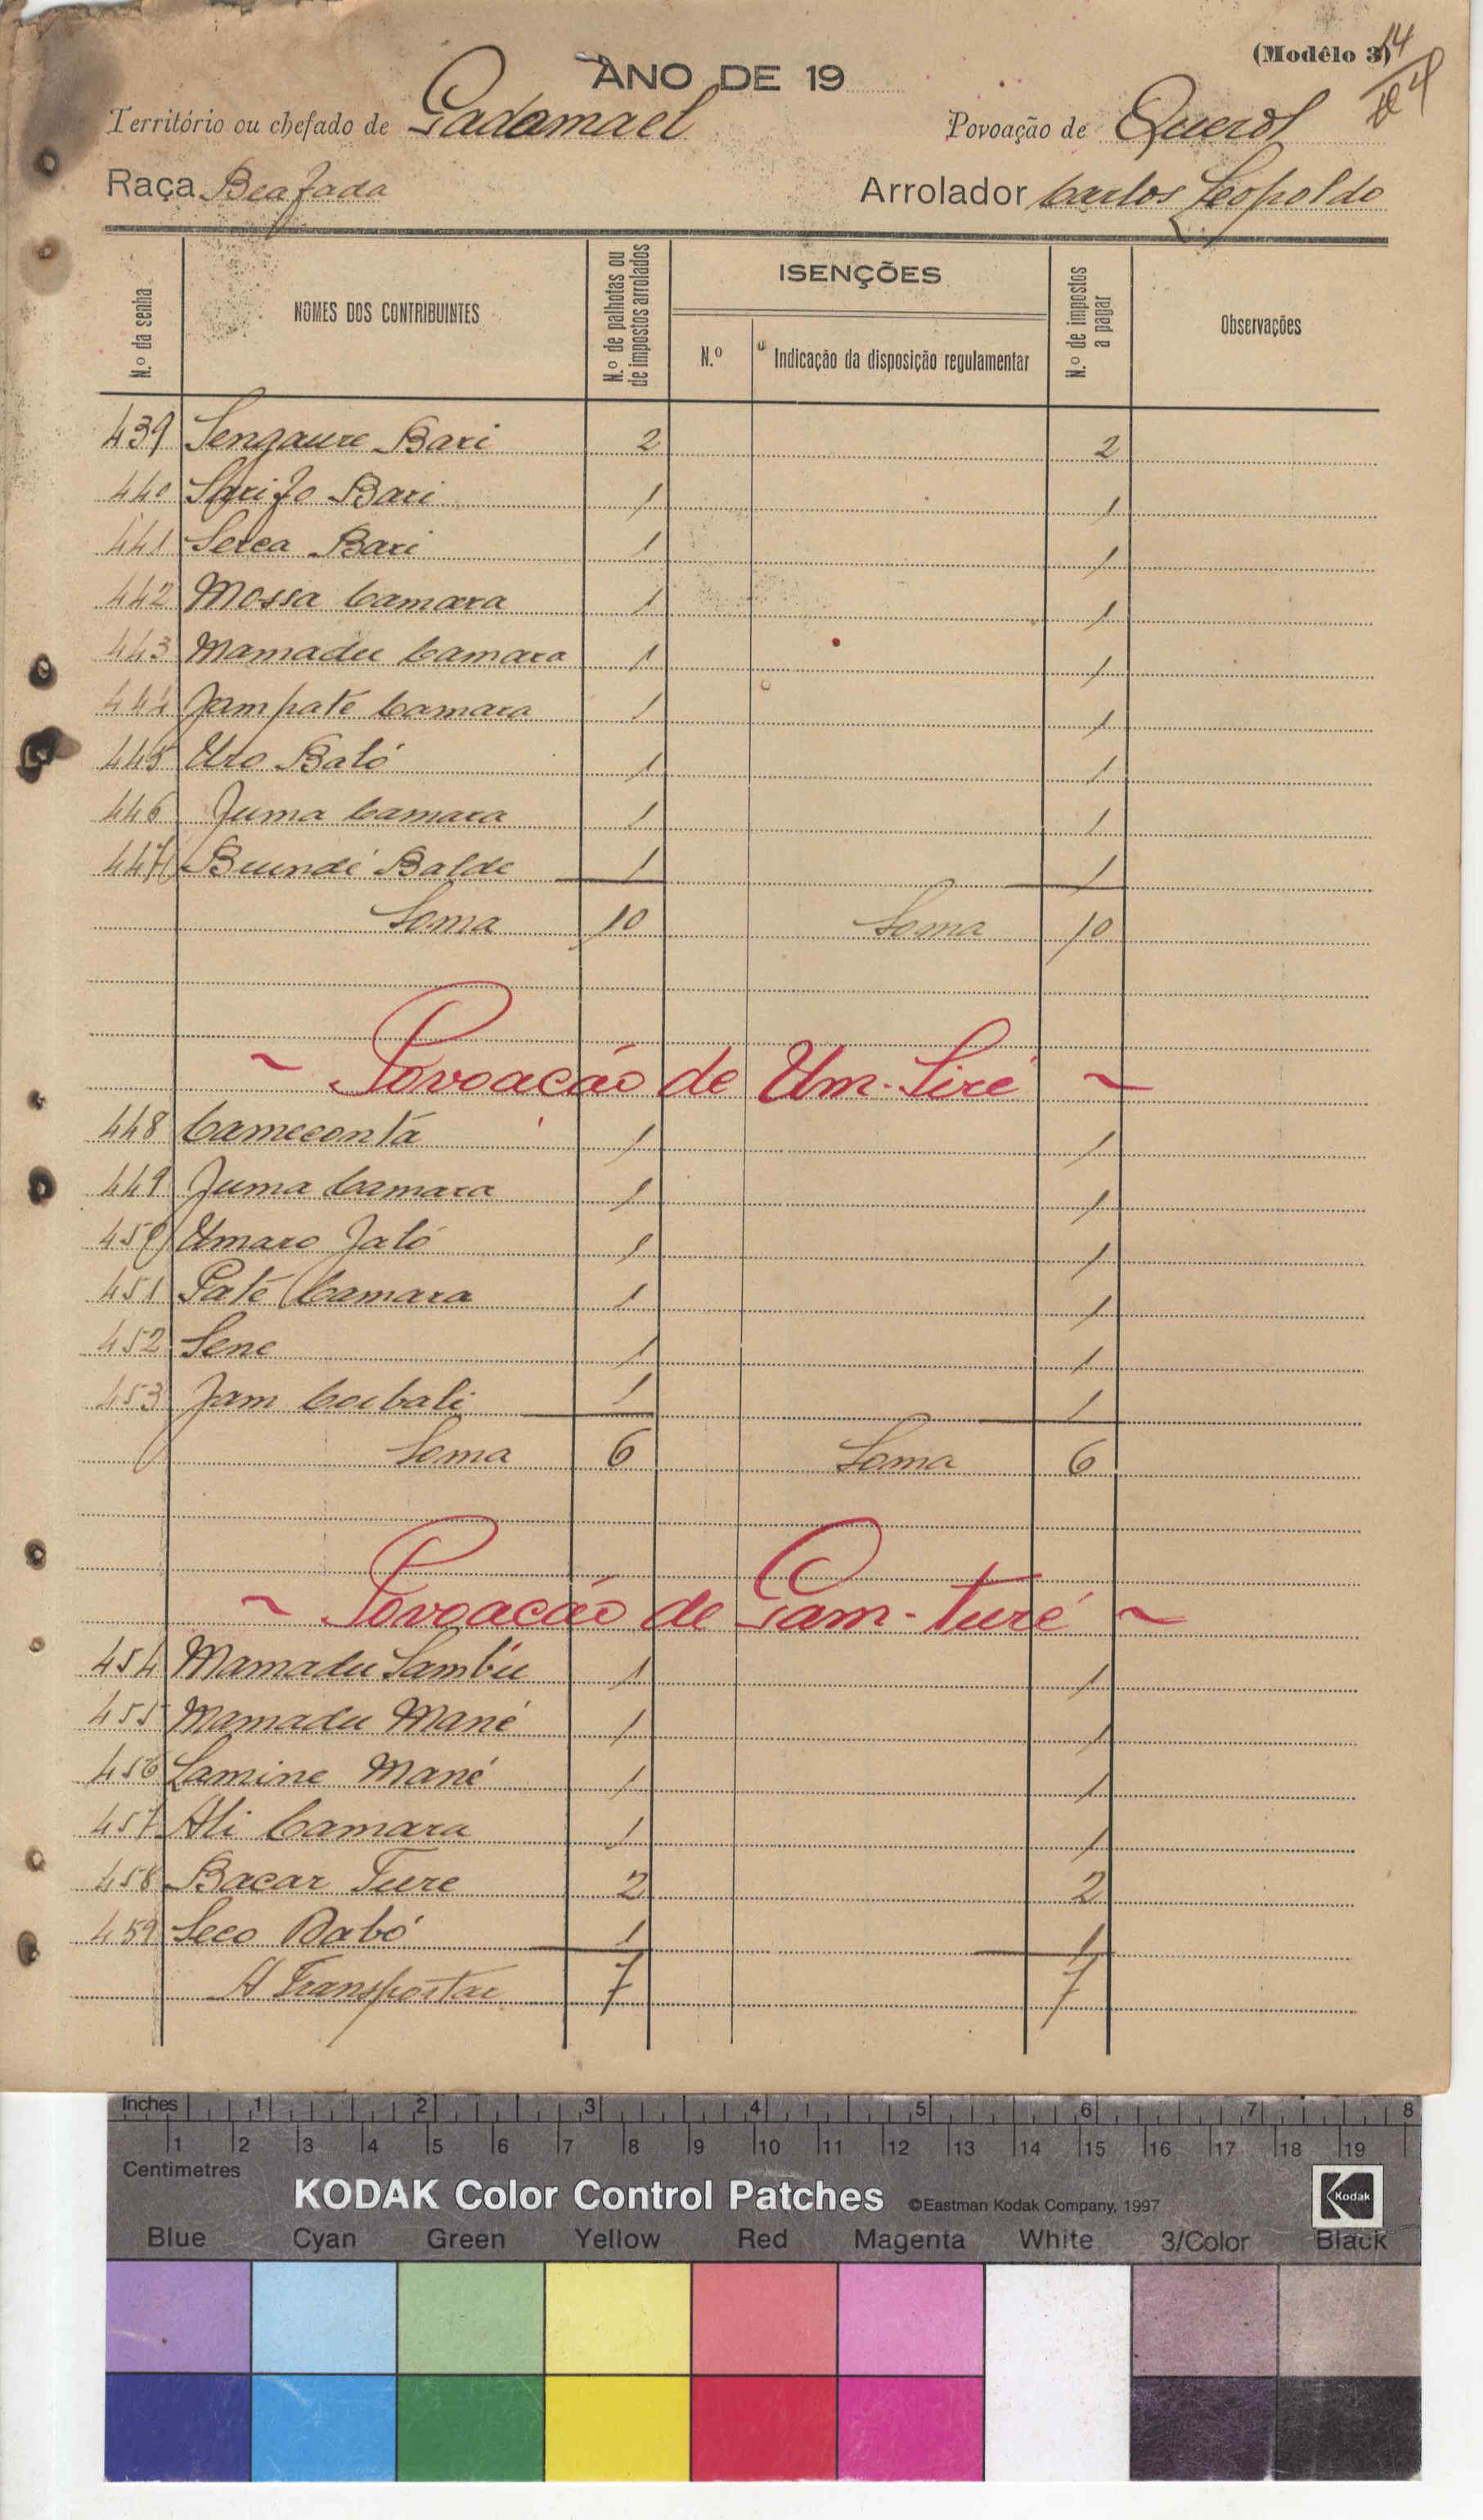 (Modêlo 3)
14
ANO DE 19
Território ou chefado de Gadamael Povoação de Querol
Raça Beafada Arrolador Carlos Leopoldo
N.º da senha
NOMES DOS CONTRIBUINTES
N.º de palhotas ou de impostos arrolados
ISENÇÕES
N.º
Indicação da disposição regulamentar
N.º de impostos a pagar
Observações
439 Sengaure Bari 2 2
440 Sarifo Bari 1 1
441 Serea Bari 1 1
442 Mossa Camara 1 1
443 Mamadu Camara 1 1
444 Jampaté Camara 1 1
445 Uro Baló 1 1
446 Juma Camara 1 1
447 Bundé Balde 1 1
Soma 10 Soma 10
~ Povoacáo de Um-Siré ~
448 Camecontá 1 1
449 Juma Camara 1 1
450 Umaro Jaló 1 1
451 Paté Camara 1 1
452 Sene 1 1
453 Jam Coibali 1 1
Soma 6 Soma 6
~ Povoacáo de Gam-Turé ~
454 Mamadu Sambú 1 1
455 Mamadu Mané 1 1
456 Lamine Mané 1 1
457 Ali Camara 1 1
458 Bacar Ture 2 2
459 Seco Dabó 1 1
A Transportar 7 7
Inches 1 2 3 4 5 6 7 8
1 2 3 4 5 6 7 8 9 10 11 12 13 14 15 16 17 18 19
Centimetres
KODAK Color Control Patches ©Eastman Kodak Company, 1997 Kodak
Blue Cyan Green Yellow Red Magenta White 3/Color Black